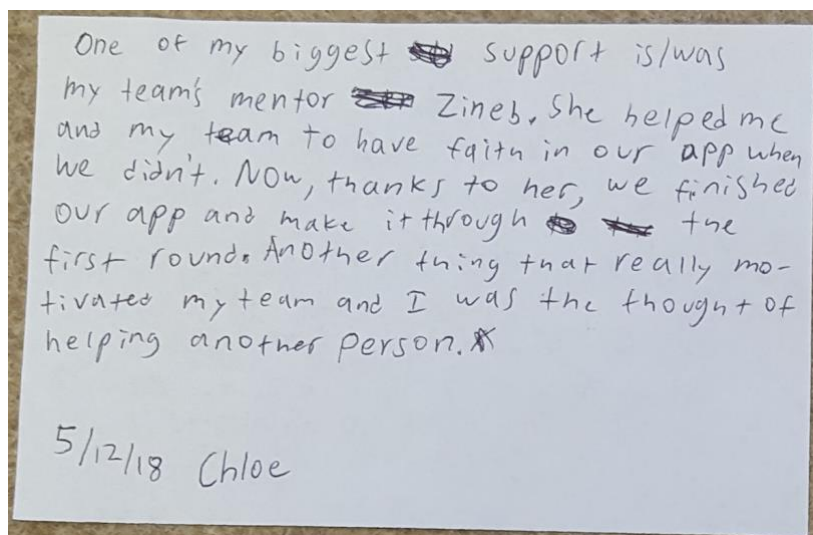 One of my biggest support is/was
my team's mentor Zineb. She helped me
and my team to have faith in our app when
we didn't. Now, thanks to her, we finished
our app and make it through the
first round. Another thing that really mo-
tivated my team and I was the thought of
helping another person.
5/12/18 Chloe